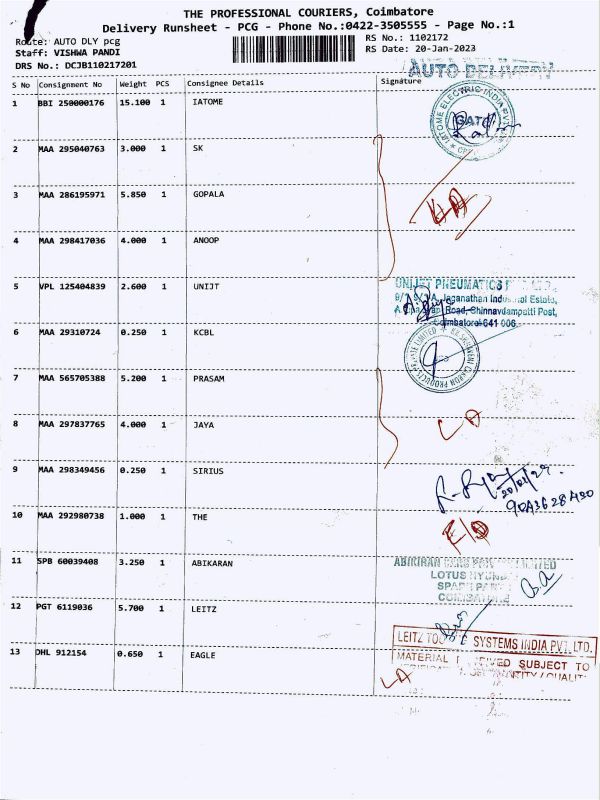 THE PROFESSIONAL COURIERS, Coimbatore
Delivery Runsheet - PCG - Phone No.:0422-3505555 - Page No.:1
Route: AUTO DLY pcg
RS No.: 1102172
Staff: VISHWA PANDI
RS Date: 20-Jan-2023
DRS No.: DCJB110217201
AUTO DELIVERY
S No Consignment No Weight PCS Consignee Details Signature
1 BBI 250000176 15.100 1 IATOME
IATOME ELECTRIC INDIA PVT
2 MAA 295040763 3.000 1 SK
3 MAA 286195971 5.850 1 GOPALA
4 MAA 298417036 4.000 1 ANOOP
5 VPL 125404839 2.600 1 UNIJT
UNIJET PNEUMATICS
Jaganathan Industrial Estate,
Road, Chinnavdampatti Post,
Coimbatore-641 006
6 MAA 29310724 0.250 1 KCBL
CARBON PRODUCTS PRIVATE LIMITED
7 MAA 565705388 5.200 1 PRASAM
8 MAA 297837765 4.000 1 JAYA
LA
9 MAA 298349456 0.250 1 SIRIUS
10 MAA 292980738 1.000 1 THE
11 SPB 60039408 3.250 1 ABIKARAN
LOTUS
COIMBATORE
12 PGT 6119036 5.700 1 LEITZ
LEITZ SYSTEMS INDIA PVT. LTD.
MATERIAL RECEIVED SUBJECT TO
13 DHL 912154 0.650 1 EAGLE
LA